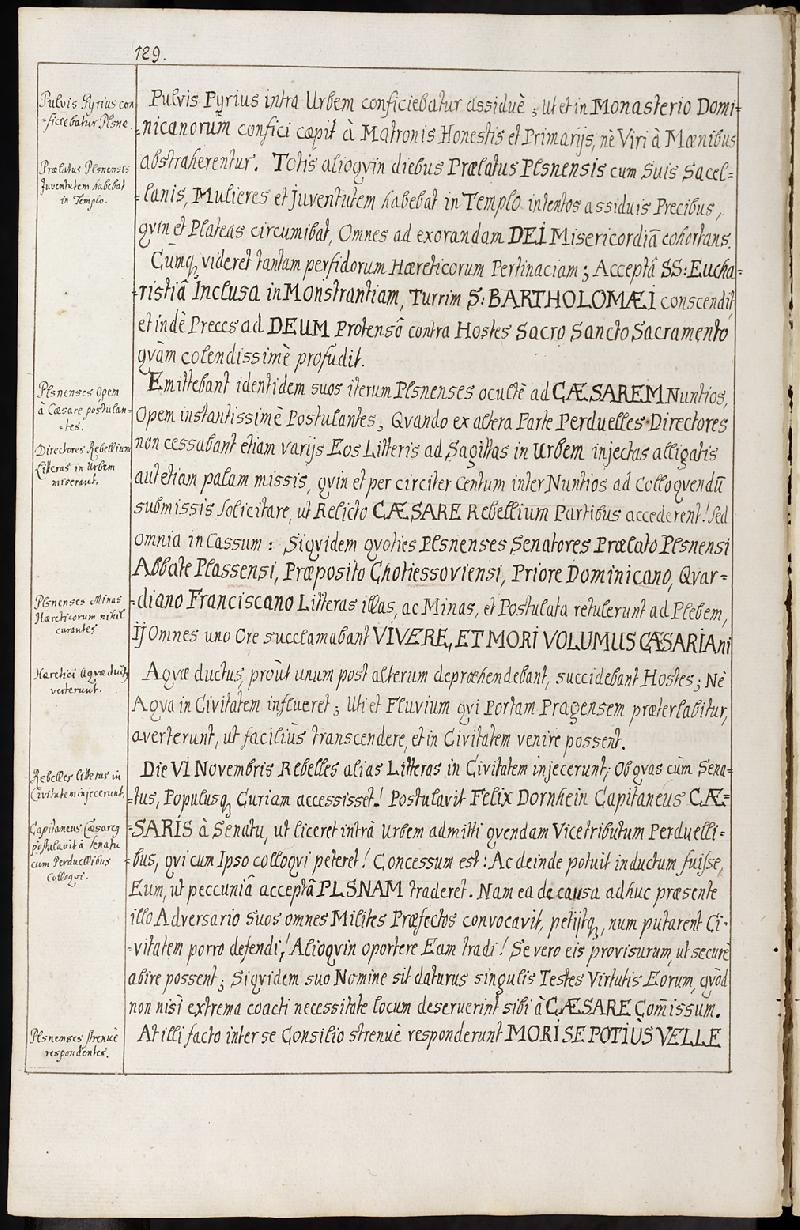 129.
Pulvis Pyrius con
ficiebatur Plsnæ.
Prælatus Plsnensis
Juventutem habebat
in Templo.
Plsnenses Opem
à Cæsare postulan-
-tes.
Directores Rebellium
Literas in Urbem
miserant.
Plsnenses Minas
Hæreticorum nihil
curantes
Hæretici Aquæ duct9
verterunt.
Rebelles litteras in
Civitatem injecerunt,
Capitaneus Cæsareg
postulavit à Senatu
cum Perduellibus
Colloqvi.
Plsnenses strenuè
respondentes.
Pulvis Pyrius intra Urbem conficiebatur assiduè ; Ut et in Monasterio Domi-
-nicanorum confici cæpit à Matronis Honestis et Primarijs, nè Viri à Mænibus
abstraherentur. Totis alioqvin diebus Prælatus Plsnensis cum Suis Sacel-
-lanis, Mulieres et Juventutem habebat in Templo intentos assiduis Precibus,
qvin et Plateas circumibat, Omnes ad exorandam DEI Misericordiã cohortans.
Cumq, videret tantam perfidorum Hæreticorum Pertinaciam ; Acceptâ SS: Eucha-
-ristiâ Inclusa in Monstrantiam, Turrim S: BARTHOLOMÆI conscendit,
et indè Preces ad DEUM Protensô contra Hostes Sacro Sancto Sacramento
qvàm colendissimè profudit.
Emittebant identidem suos iterum Plsnenses occultè ad CÆSAREM Nuntios,
Opem instantissimè Postulantes, Qvando ex altera Parte Perduelles Directores
non cessabant etiam varijs Eos Litteris ad Sagittas in Urbem injectas alligatis
aut etiam palam missis, qvin et per circiter Centum inter Nuntios ad Colloqvendũ
submissis solicitare, ut Relicto CÆSARE Rebellium Partibus accederent! Sed
omnia in Cassum : Siqvidem qvoties Plsnenses Senatores Prælato Plsnensi
Abbate Plassensi, Præposito Chotiessoviensi, Priore Dominicano, Qvar-
-diano Franciscano Litteras illas, ac Minas, et Postulata retulerunt ad Plebem,
Ij Omnes uno Ore succlamabant VIVERE, ET MORI VOLUMUS CÆSARIANI
Aqvæ ductus, proùt unum post alterum depræhendebant, succidebant Hostes ; Nè
Aqva in Civitatem influeret ; Uti et Fluvium qvi Portam Pragensem præterlabitur,
averterunt, ut faciliùs transcendere, et in Civitatem venire possent.
Die VI Novembris Rebelles alias Litteras in Civitatem injecerunt, Ob qvas cùm Sena-
-tus, Populusq, Curiam accessisset! Postulavit Felix Dornhein Capitaneus CÆ-
-SARIS à Senatu, ut liceret intrà Urbem admitti qvendam Vicetributum Perduelli-
-bus, qvi cum Ipso colloqvi peteret! Concessum est : Ac deinde potuit inductum fuisse,
Eum, ut peccuniâ acceptâ PLSNAM traderet. Nam ea de causa adhuc præsente
illo Adversario suos omnes Milites Præfectos convocavit, petijtq, num putarent Ci-
-vitatem porro defendi ! Alioqvin oportere Eam tradi ! Se vero eis provisurum, ut securè
abire possent ; Siqvidem suo Nomine sit daturus singulis Testes Virtutis Eorum, qvòd
non nisi extrema coacti necessitate locum deseruerint sibi à CÆSARE Com̃issum.
At illi facto inter se Consilio strenuè responderunt MORI SE POTIÙS VELLE